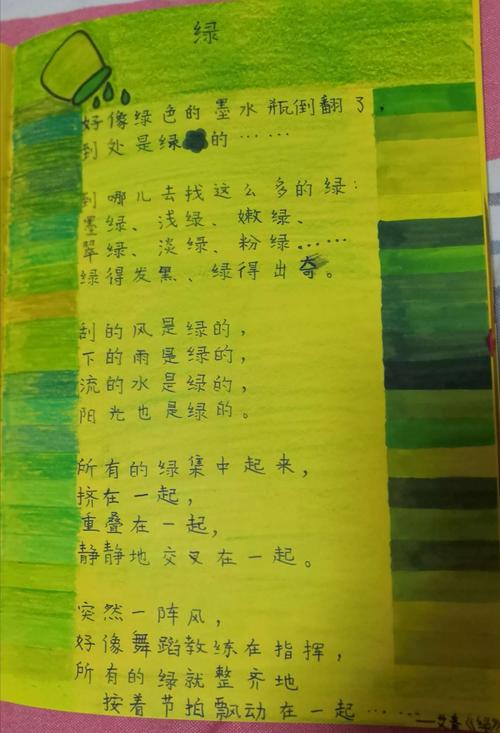 绿
好像绿色的墨水瓶倒翻了，
到处是绿的……
到哪儿去找这么多的绿：
墨绿、浅绿、嫩绿、
翠绿、淡绿、粉绿……
绿得发黑、绿得出奇。
刮的风是绿的，
下的雨是绿的，
流的水是绿的，
阳光也是绿的。
所有的绿集中起来，
挤在一起，
重叠在一起，
静静地交叉在一起。
突然一阵风，
好像舞蹈教练在指挥，
所有的绿就整齐地
按着节拍飘动在一起……
——艾青《绿》